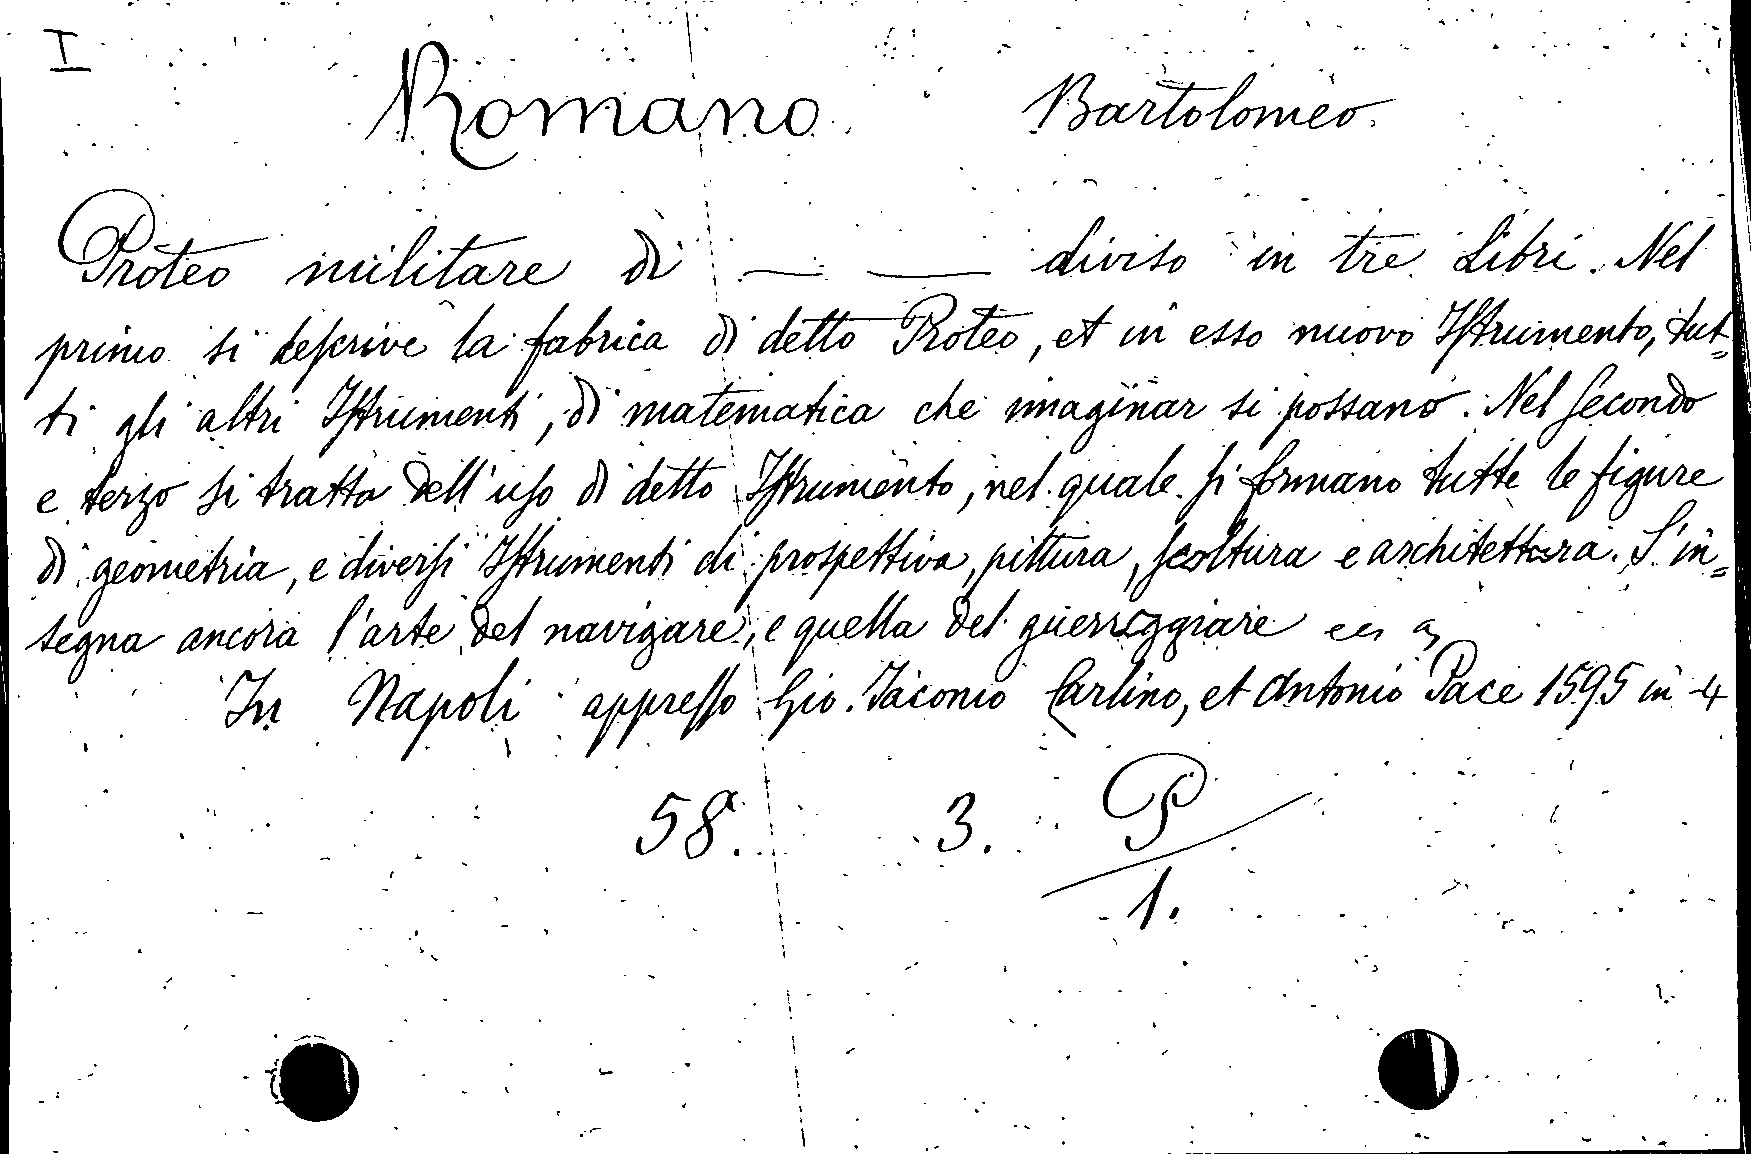 I
Romano Bartolomeo.
Proteo militare di —— —— diviso in tre Libri. Nel
primo si descrive la fabrica di detto Proteo, et in esso nuovo Istrumento, tut=
ti gli altri Istrumenti, di matematica che imaginar si possano. Nel secondo
e terzo si tratta dell'uso di detto Istrumento, nel quale si formano tutte le figure
di geometria, e diversi Istrumenti di prospettiva, pittura, scoltura e architettura. S'in=
segna ancora l'arte del navigare, e quella del guerreggiare
In Napoli appresso Gio. Iacomo Carlino, et Antonio Pace 1595 in 4
58. 3. P
1.